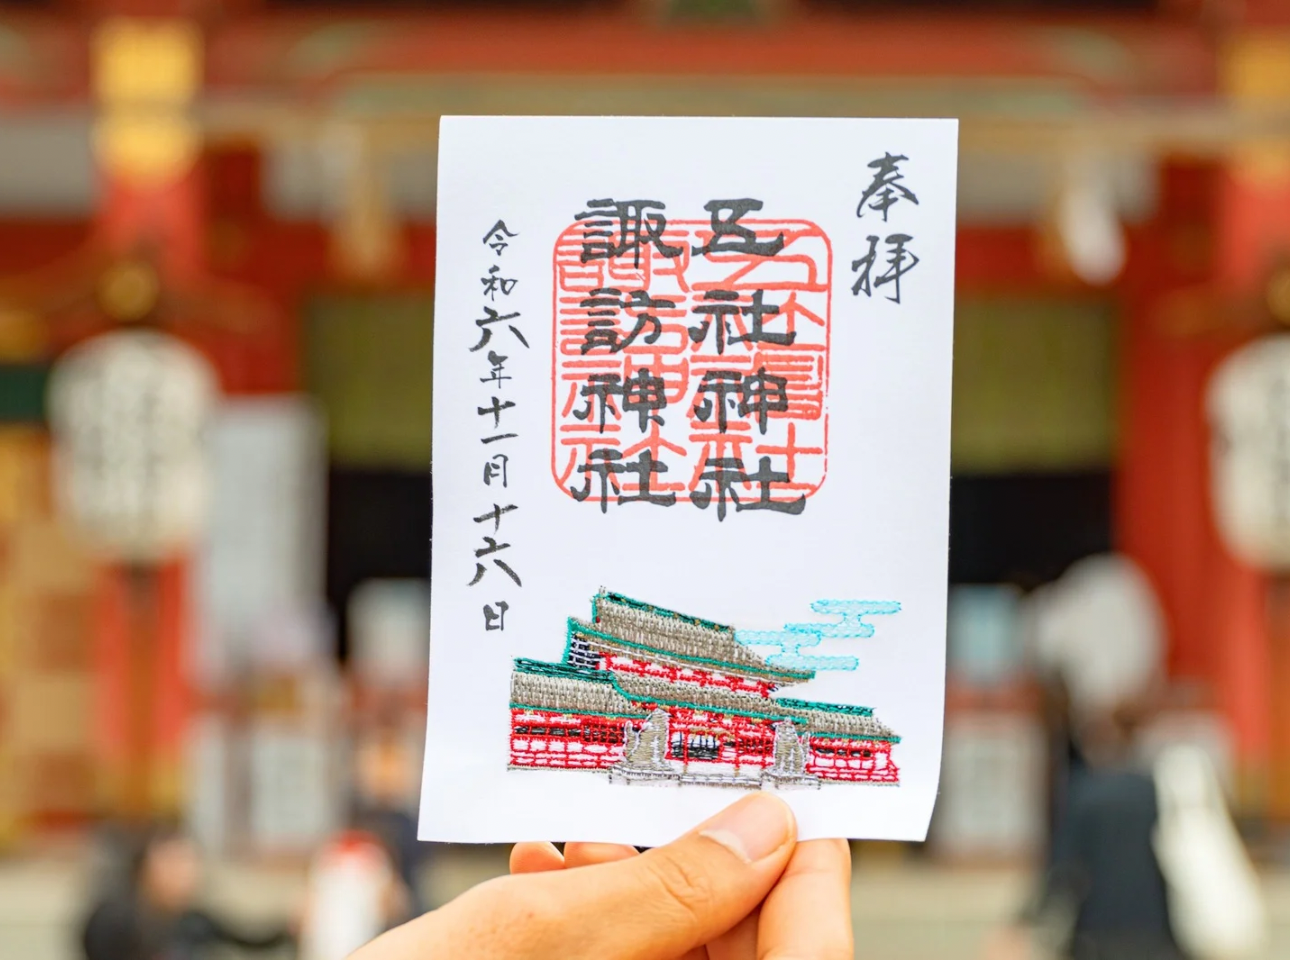 奉拝
五社神社
諏訪神社
令和六年十一月十六日